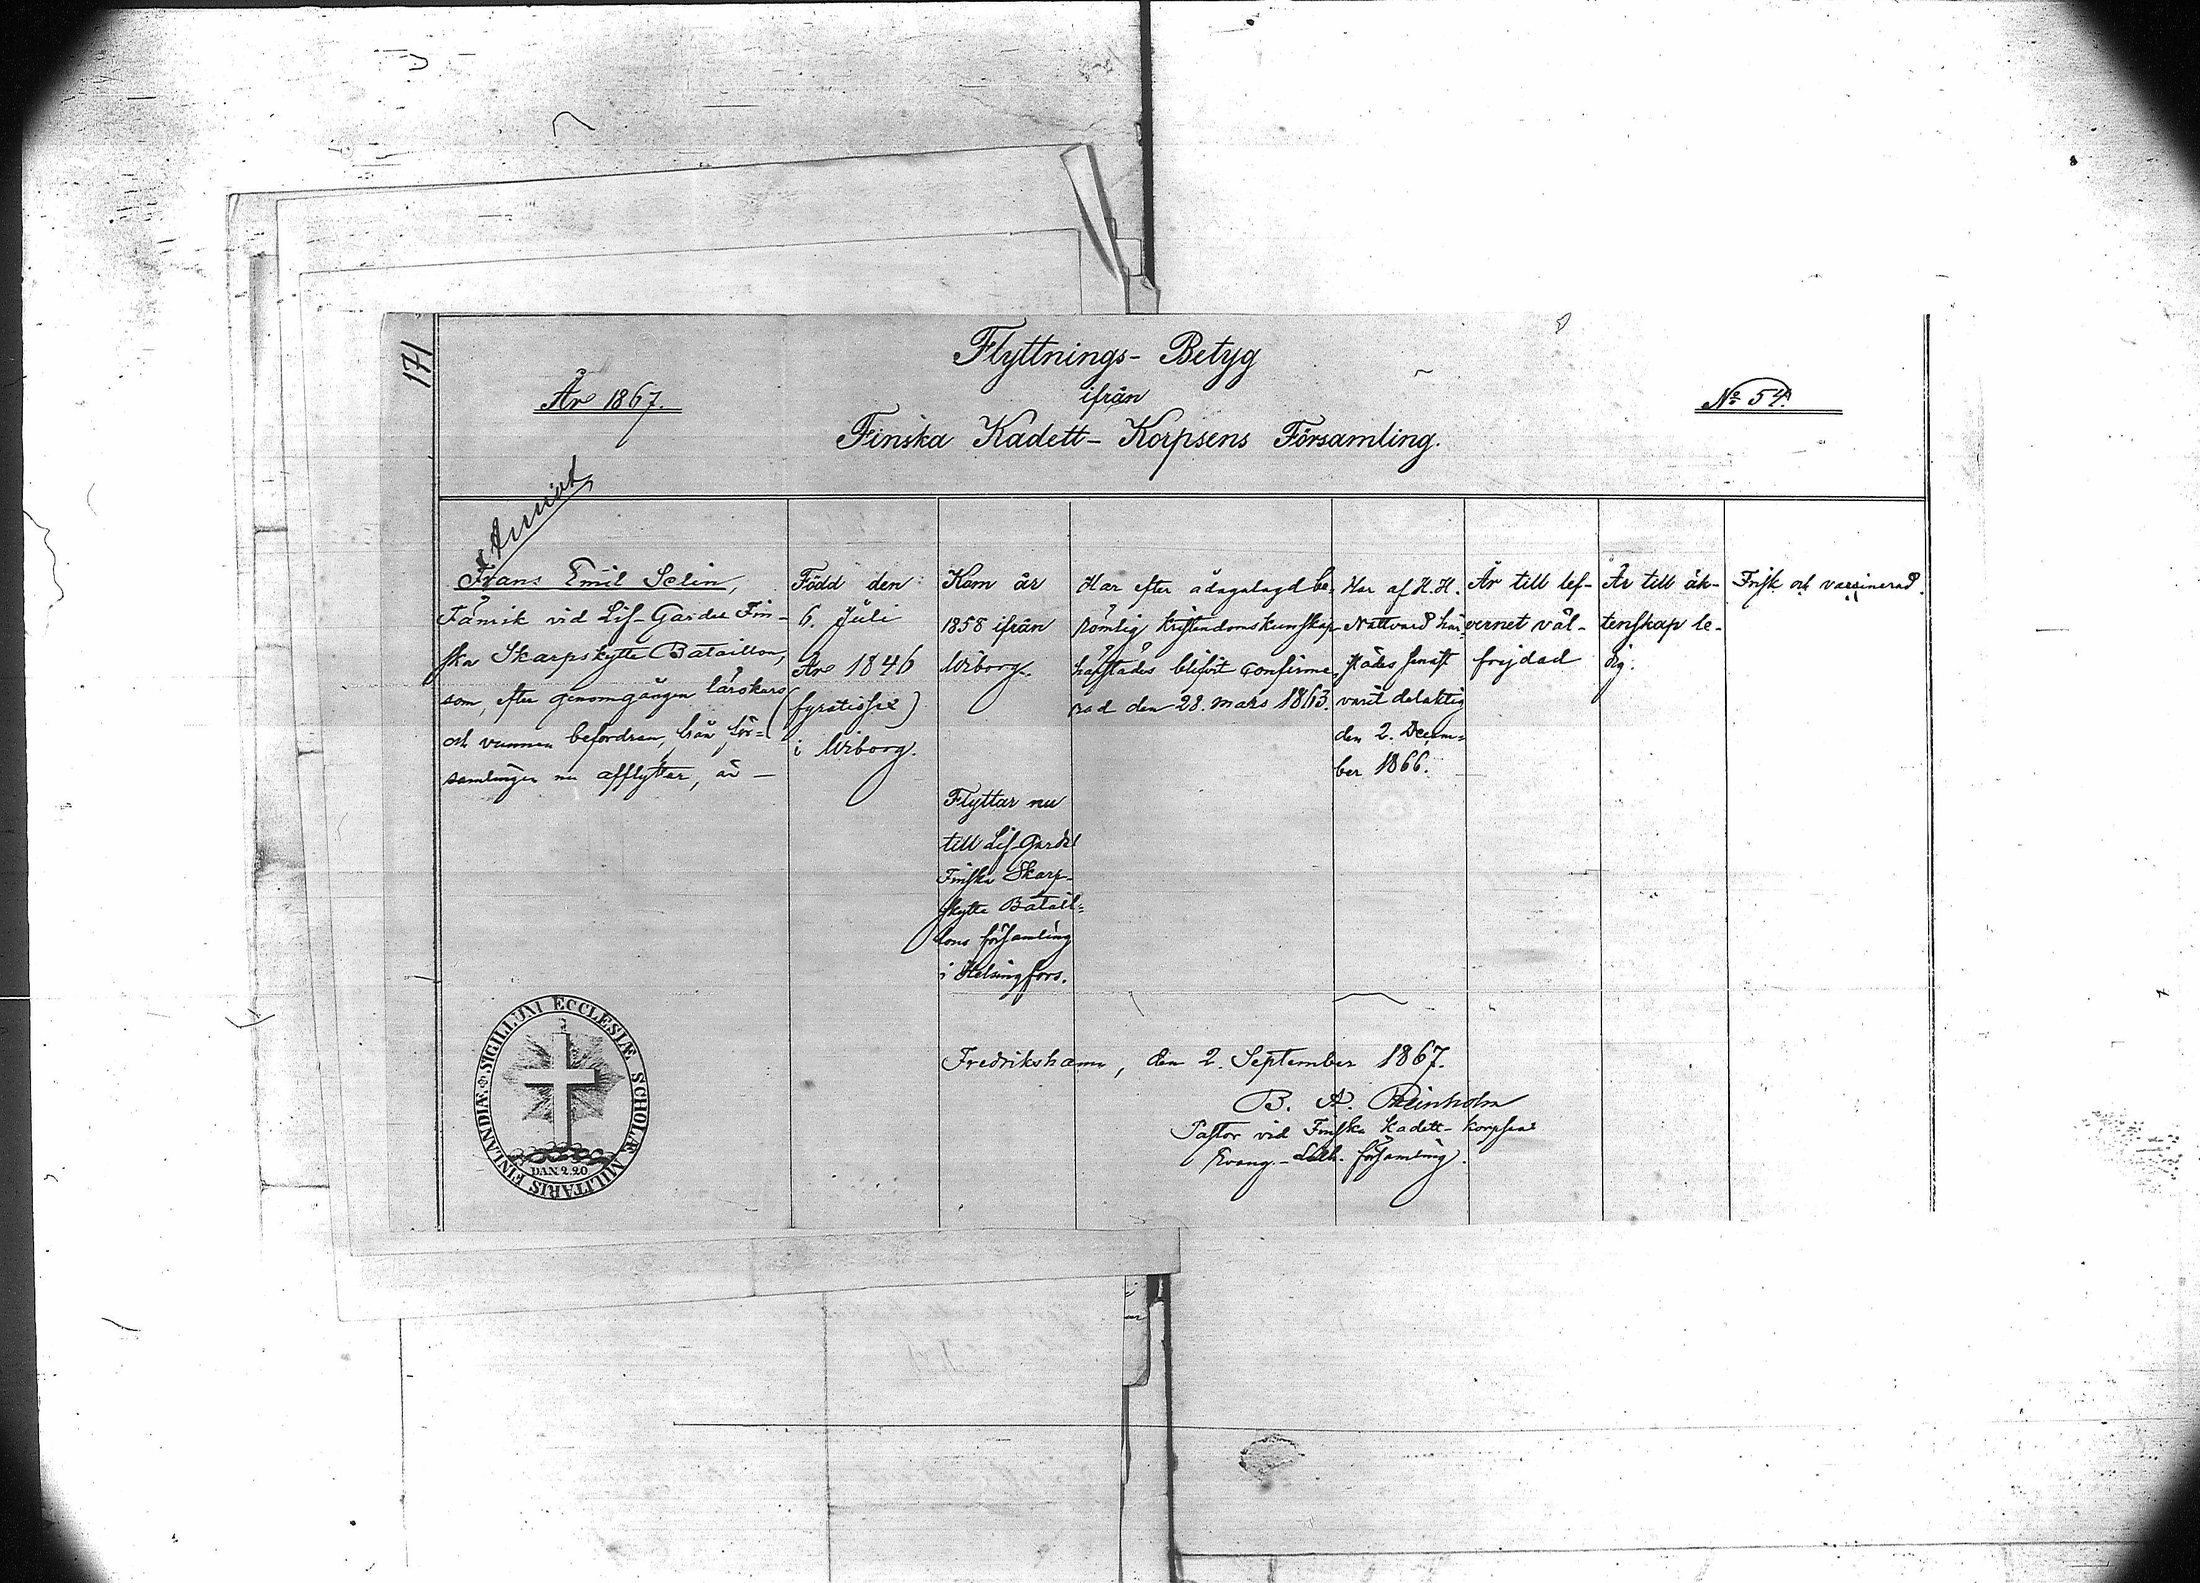 171
Flyttnings-Betyg
År 1867.
ifrån
No 54.
Finska Kadett-Korpsens Församling.
Frans Emil Selin,
Fänrik vid Lif-Gardes Fin-
ska Skarpskytte Bataillon,
som, efter genomgången lärokurs
och vunnen befordran, från för-
samlingen nu afflyttar, är —
Född den
6. Juli
År 1846
(fyratiosex)
i Wiborg.
Kom år
1858 ifrån
Wiborg.
Flyttar nu
till Lif-Gardes
Finska Skarp-
skytte Batail-
lons församling
i Helsingfors.
Har efter ådagalagd be-
römlig kristendomskunskap
härstädes blifvit confirme-
rad den 28. Mars 1863.
Har af H. H.
Nattvard här-
städes senast
varit delaktig
den 2. Decem-
ber 1866.
Är till lef-
vernet väl-
frejdad
Är till äk-
tenskap le-
dig.
Frisk och vaccinerad.
Fredrikshamn, den 2. September 1867.
B. A. Reinholm
Pastor vid Finska Kadett-Korpsens
Evang.-Luth. församling.
SIGILLUM ECCLESIÆ SCHOLÆ MILITARIS FINLANDIÆ
DAN 2.20